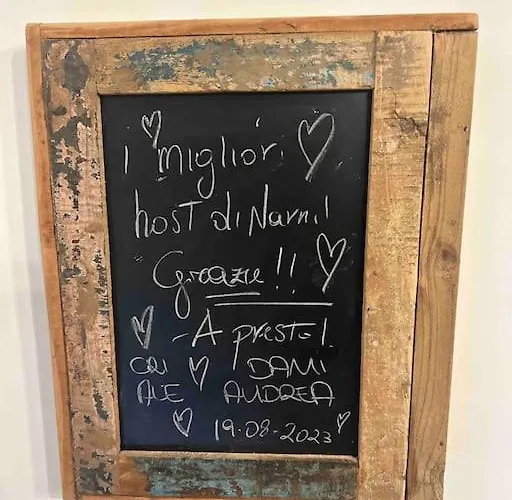 I migliori
host di Narni!
Grazie!!
- A presto!
ORI DAMI
ALE ANDREA
19-08-2023